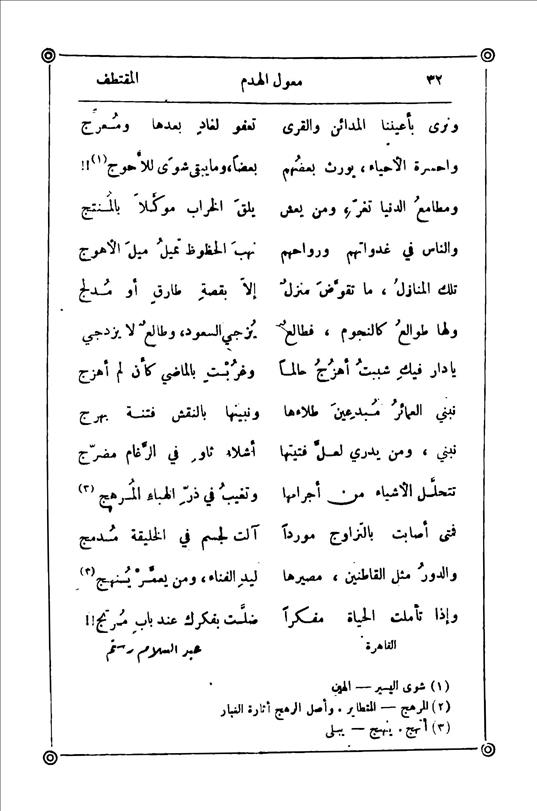 ٣٢ معول الهدم المقتطف
ونرى بأعيننا المدائن والقرى تعفو لغادٍ بعدها ومُعرّج
واحسرة الأحياء، يورث بعضُهم بعضاً، ومايبقى شوًى للأحوج (١) !!
ومطامعُ الدنيا تغرّ، ومن يعش يلقَ الخراب موكَّلاً بالمُنتج
والناس في غدواتهم ورواحهم نهبَ الحظوظ تميلُ ميلَ الأهوج
تلك المنازلُ، ما تقوّضَ منزلٌ إلاّ بقصةِ طارقٍ أو مُدلج
ولها طوالعُ كالنجوم، فطالعٌ يُزجي السعود، وطالعٌ لا يزدجي
يادار فيكِ شببتُ أهزُجُ حالماً وغرُبْتِ بالماضي كأن لم أهزج
نبني العمائرُ مُبدعينَ طلاءها ونبينها بالنقش فتنة بهرج
نبني، ومن يدري لعلَّ فتيتها أشلاء ثاوٍ في الرَّغام مضرّج
تتحلّل الأشياء من أجرامها وتغيبُ في ذرّ الهباء المُرهج (٢)
فمتى أصابت بالتزاوج مورداً آلت لجسم في الخليقة مُدمج
والدورُ مثل القاطنين، مصيرها ليدِ الفناء، ومن يعمَّرْ يُنهج (٣)
وإذا تأملت الحياة مفكراً ضلَّت بفكرك عند بابٍ مُرتج!!
القاهرة عبد السلام رستم
(١) شوى اليسير — الهين
(٢) المرهج — المتطاير. وأصل الرهج أثارة الغبار
(٣) أنهج. ينهج — يبلى